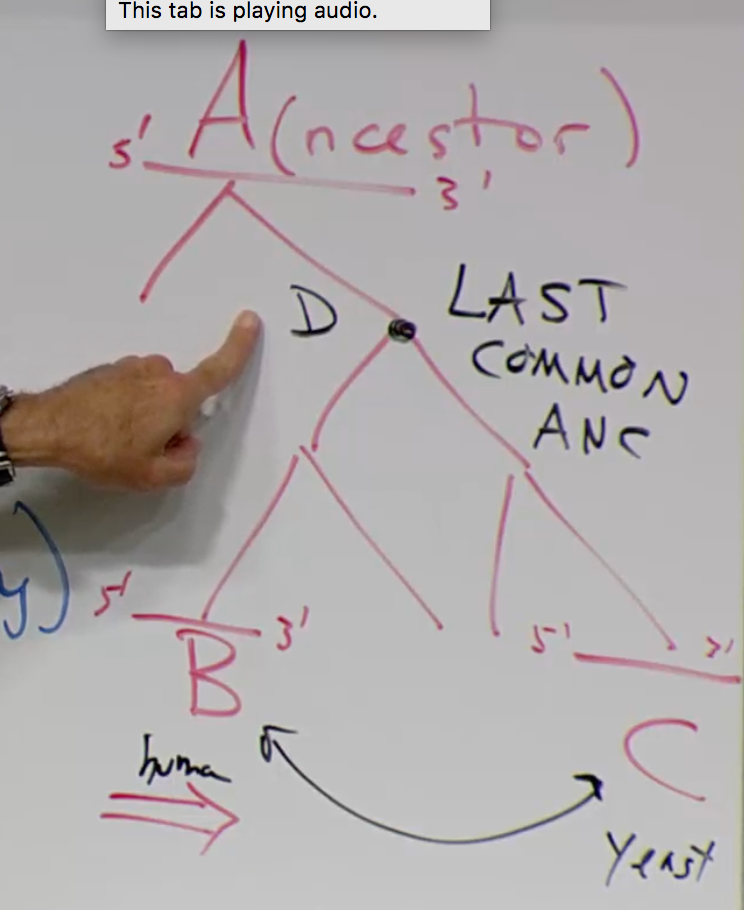 This tab is playing audio.
A(ncestor)
5' 3'
D LAST
COMMON
ANC
y)
5' 3'
5' 3'
B
C
human
Yeast